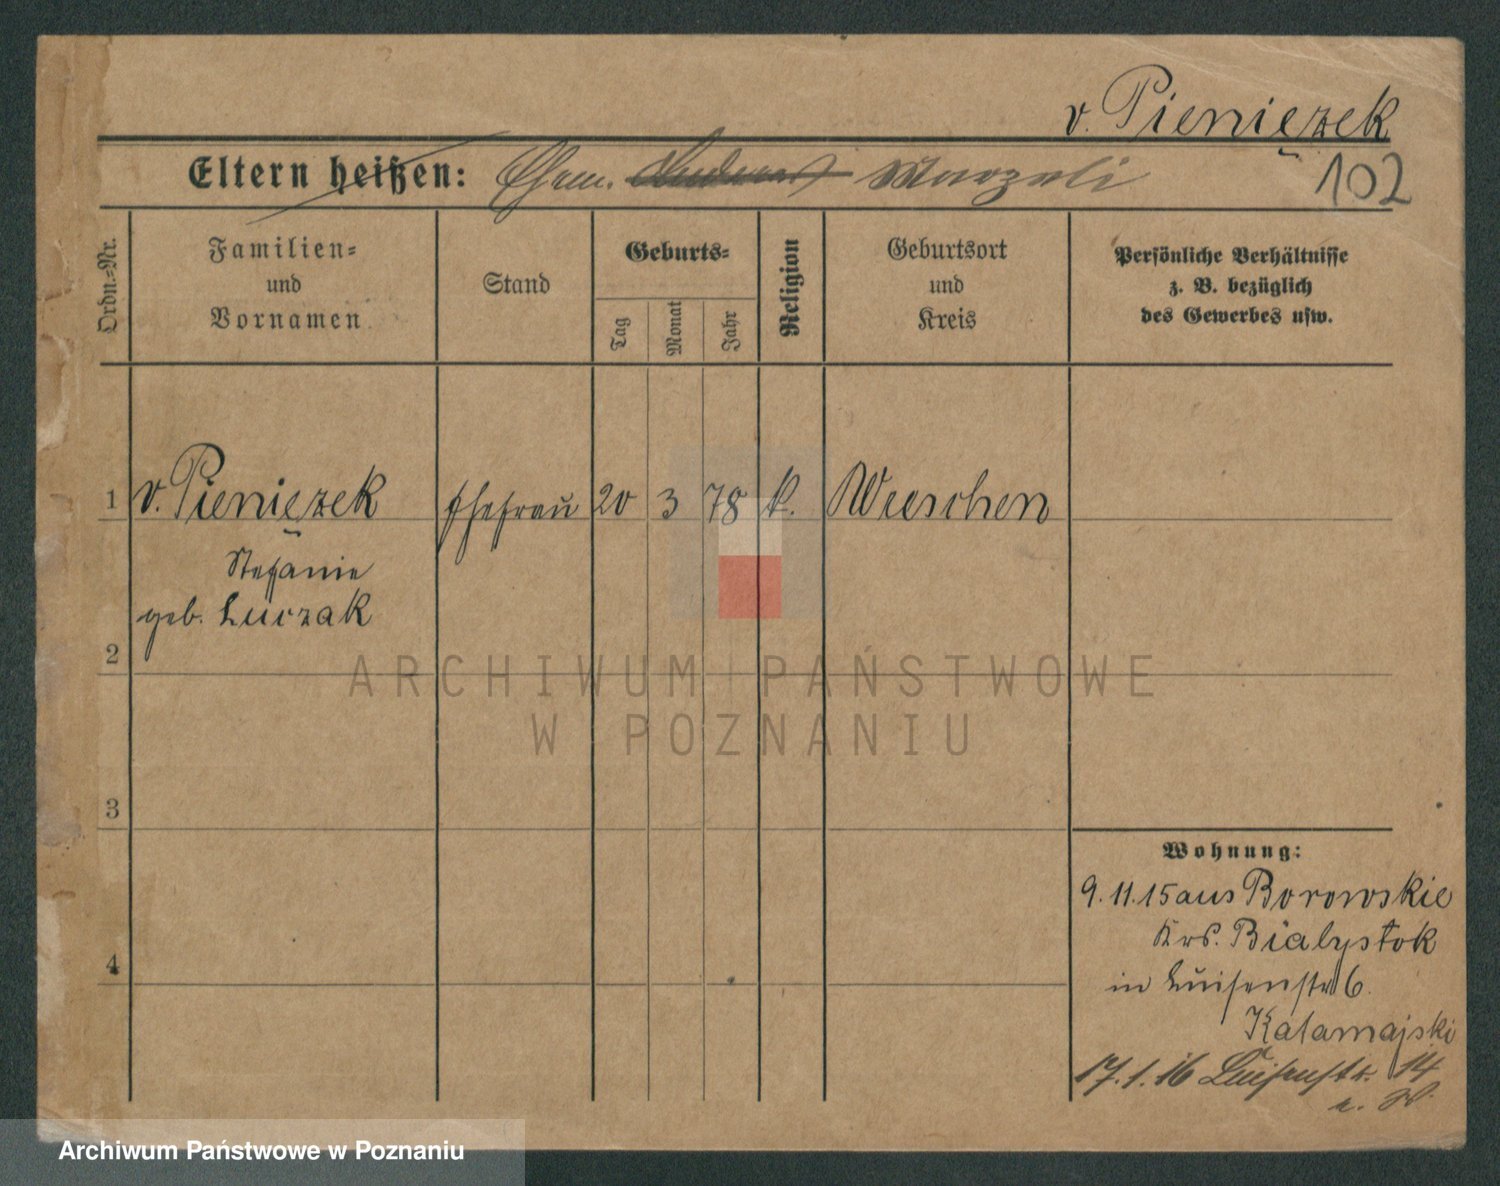 v. Pieniężek
Eltern heißen: Ehem. Marzeli
102
Ordn.-Nr.
Familien-
und
Vornamen
Stand
Geburts-
Tag
Monat
Jahr
Religion
Geburtsort
und
Kreis
Persönliche Verhältnisse
z. B. bezüglich
des Gewerbes usw.
1 v. Pieniężek Ehefrau 20 3 78 k. Wreschen
Stefanie
geb. Luczak
2
3
4
Wohnung:
9.11.15 aus Borowskie
Krs. Bialystok
in Luisenstr 6.
Kalamajski
17.1.16 Luisenstr. 14
ARCHIWUM PAŃSTWOWE
W POZNANIU
Archiwum Państwowe w Poznaniu